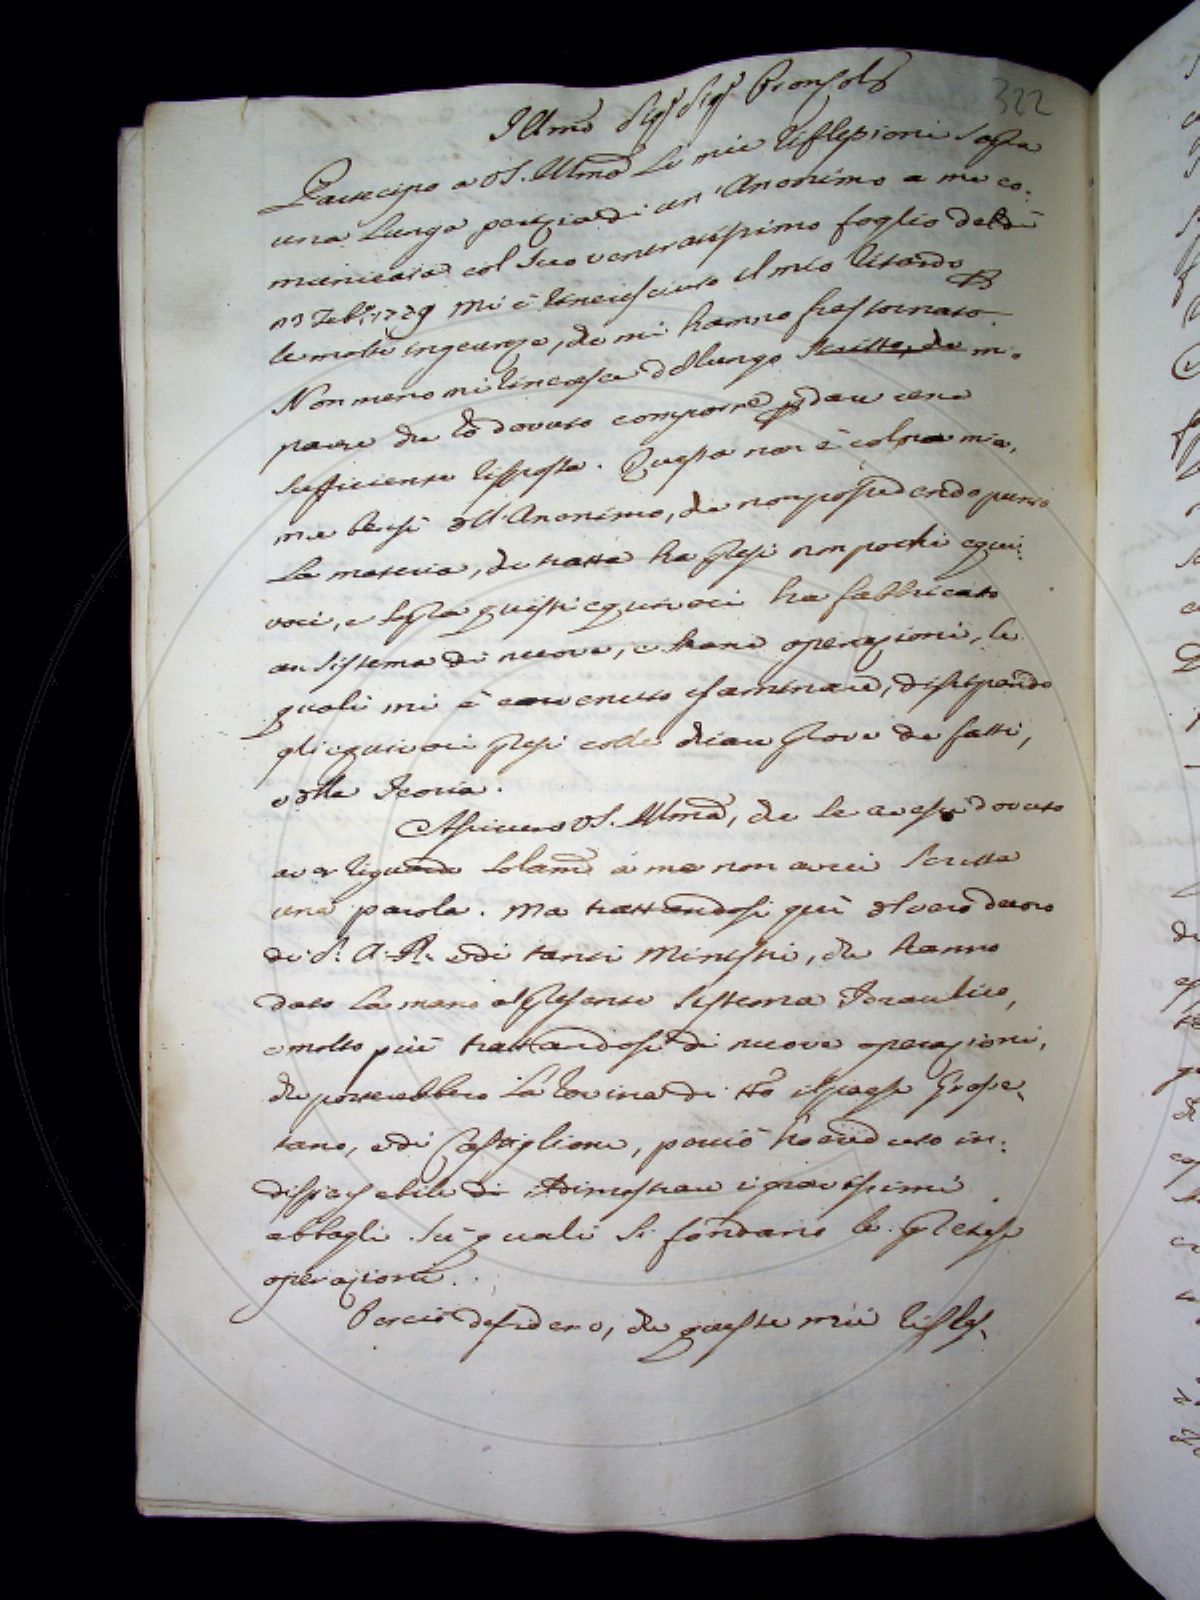 322
Illmo Sigr Sigr Pronsole
Partecipo a VS. Illma le mie riflessioni sopra
una lunga perizia di un' Anonimo a me co-
municata col suo veneratissimo foglio del dì
13 Febr. 1779 mi è rincresciuto il mio ritardo
le molte ingerenze, che mi hanno frastornato.
Non meno mi rincresce del lungo scritto, che mi
pare che ho dovuto comporre p dare una
sufficiente risposta. Questa non è colpa mia,
ma bensì dell'Anonimo, che non possedendo punto
la materia, che tratta ha presi non pochi equi-
voci, e sopra questi equivoci ha fabbricato
un sistema di nuove, e strane operazioni, le
quali mi è convenuto esaminare, discoprendo
gli equivoci presi colle chiare prove de fatti,
e della Teoria.
Assicuro VS. Illma, che se avesse dovuto
aver riguardo solamte a me non avrei scritta
una parola. Ma trattandosi quì del vero decoro
di S. A. R. e di tanti Ministri, che hanno
dato la mano al presente sistema Idraulico,
e molto più trattandosi di nuove operazioni,
che porterebbero la rovina di tto il paese Grosse-
tano, e di Castiglione, perciò ho creduto in-
dispensabile di dimostrare i gravissimi
abbagli sù quali si fondano le pretese
operazioni.
Perciò desidero, che queste mie rifles-